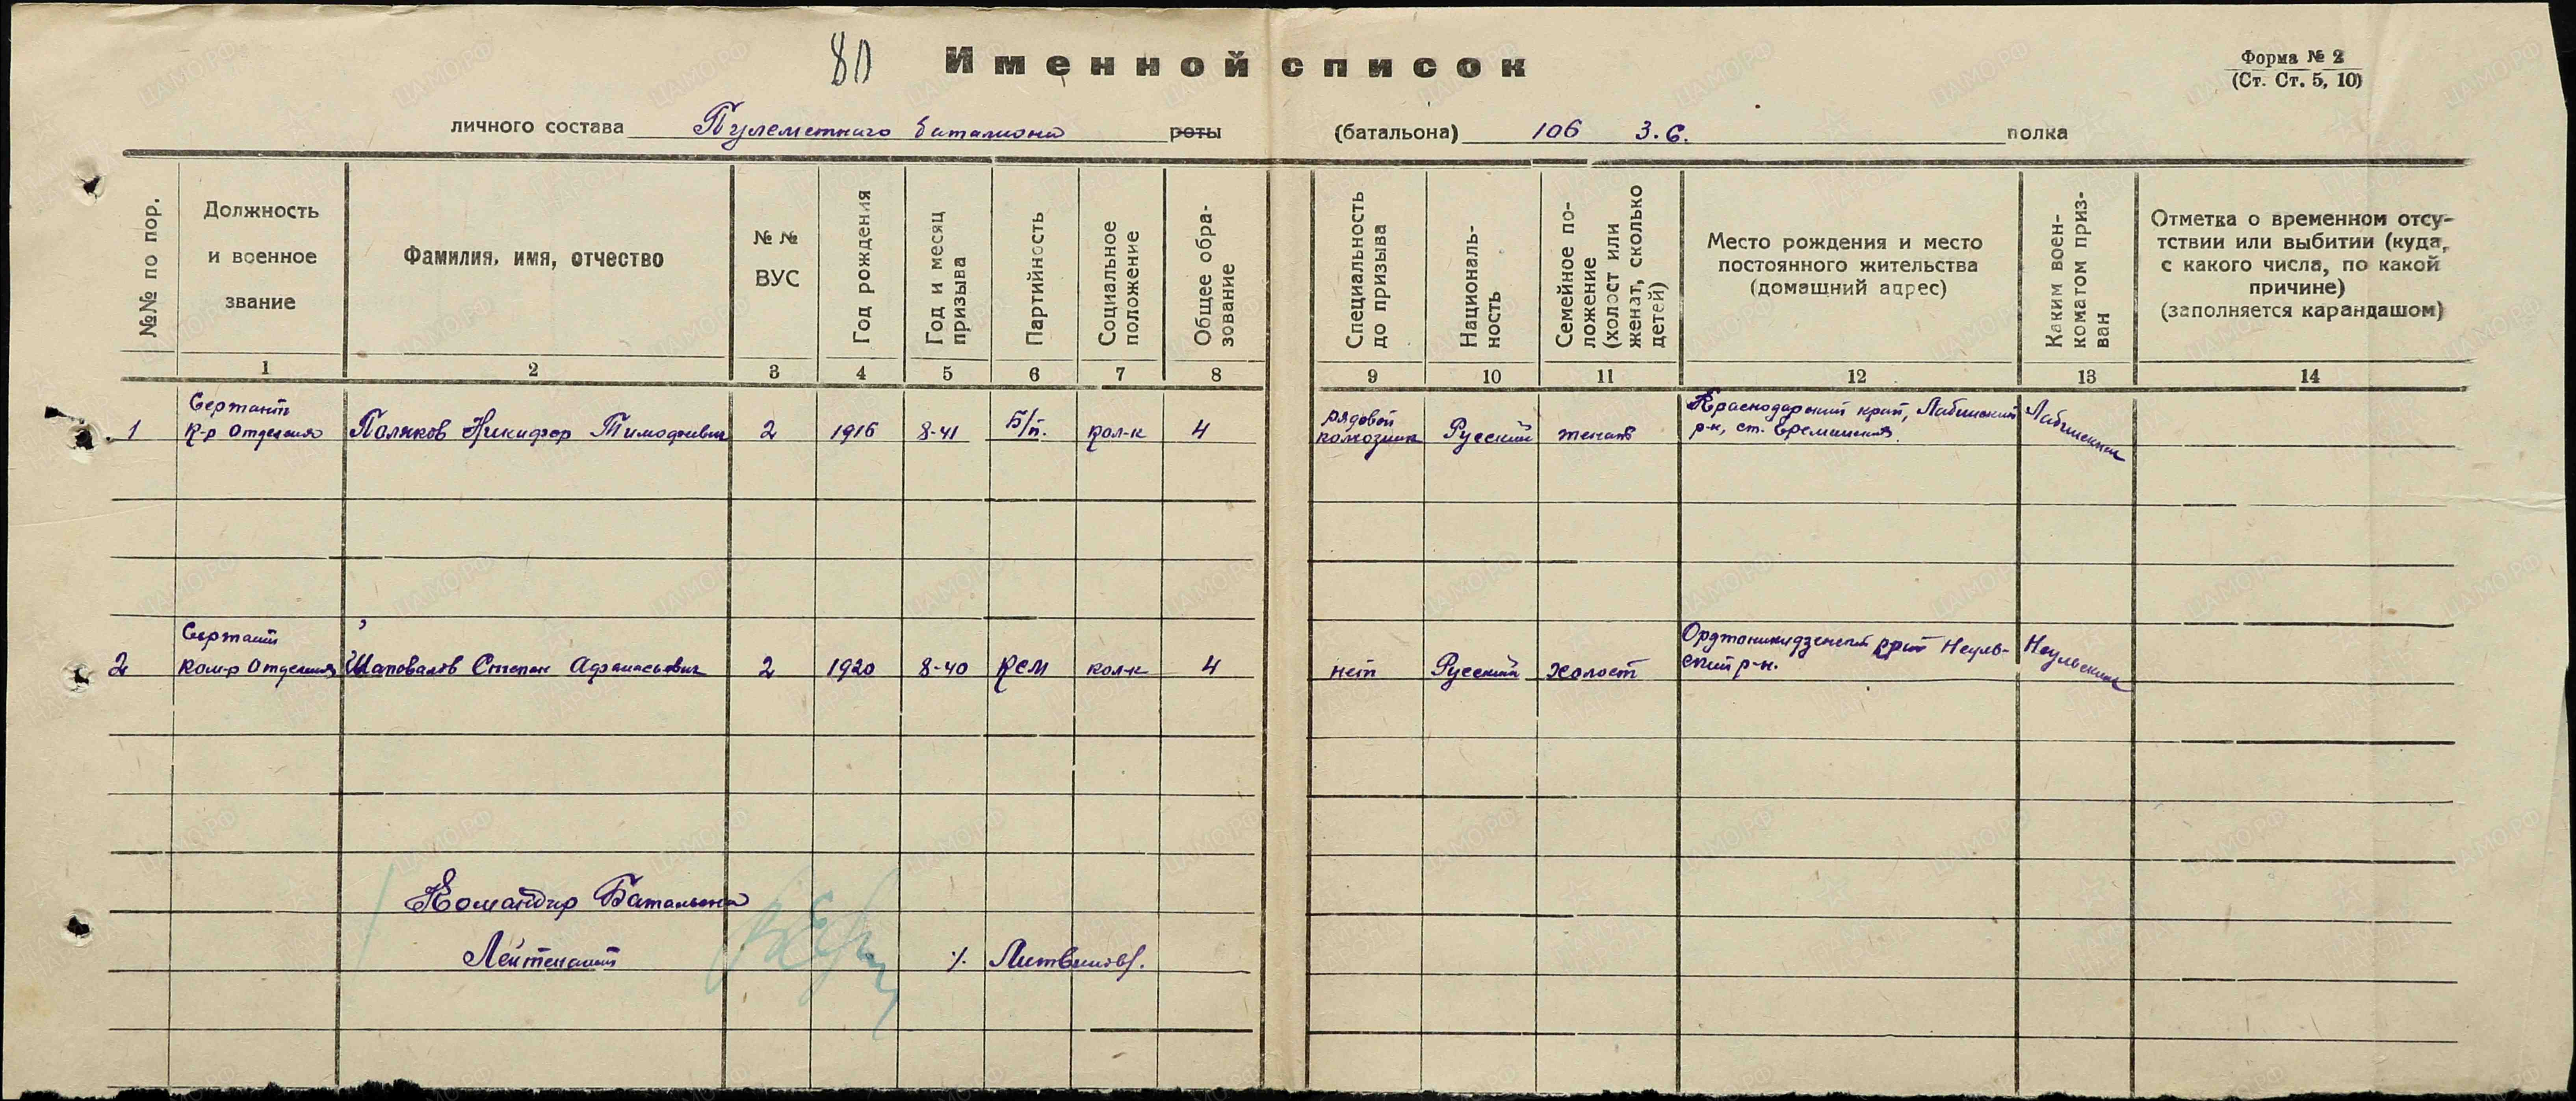 80
Именной список
Форма № 2
(Ст. Ст. 5, 10)
личного состава Пулеметного баталиона роты (батальона) 106 З.С. полка
№№ по пор.
Должность и военное звание
Фамилия, имя, отчество
№ № ВУС
Год рождения
Год и месяц призыва
Партийность
Социальное положение
Общее образование
Специальность до призыва
Националь-
ность
Семейное по-
ложение
(холост или
женат, сколько
детей)
Место рождения и место
постоянного жительства
(домашний адрес)
Каким воен-
коматом приз-
ван
Отметка о временном отсу-
тствии или выбитии (куда,
с какого числа, по какой
причине)
(заполняется карандашом)
1 2 3 4 5 6 7 8 9 10 11 12 13 14
1 Сержант
к-р Отделения Поляков Никифор Тимофеевич 2 1916 8-41 Б/п. кол-к 4 рядовой
колхозник Русский женат Краснодарский край, Лабинский
р-н, ст. Ереминская. Лабинским
2 Сержант
ком-р Отделения Шаповалов Степан Афанасьевич 2 1920 8-40 КСМ кол-к 4 нет Русский холост Орджоникидзенский край Неуль-
ский р-н. Неульским
Командир Батальона
Лейтенант /Литвинов/.